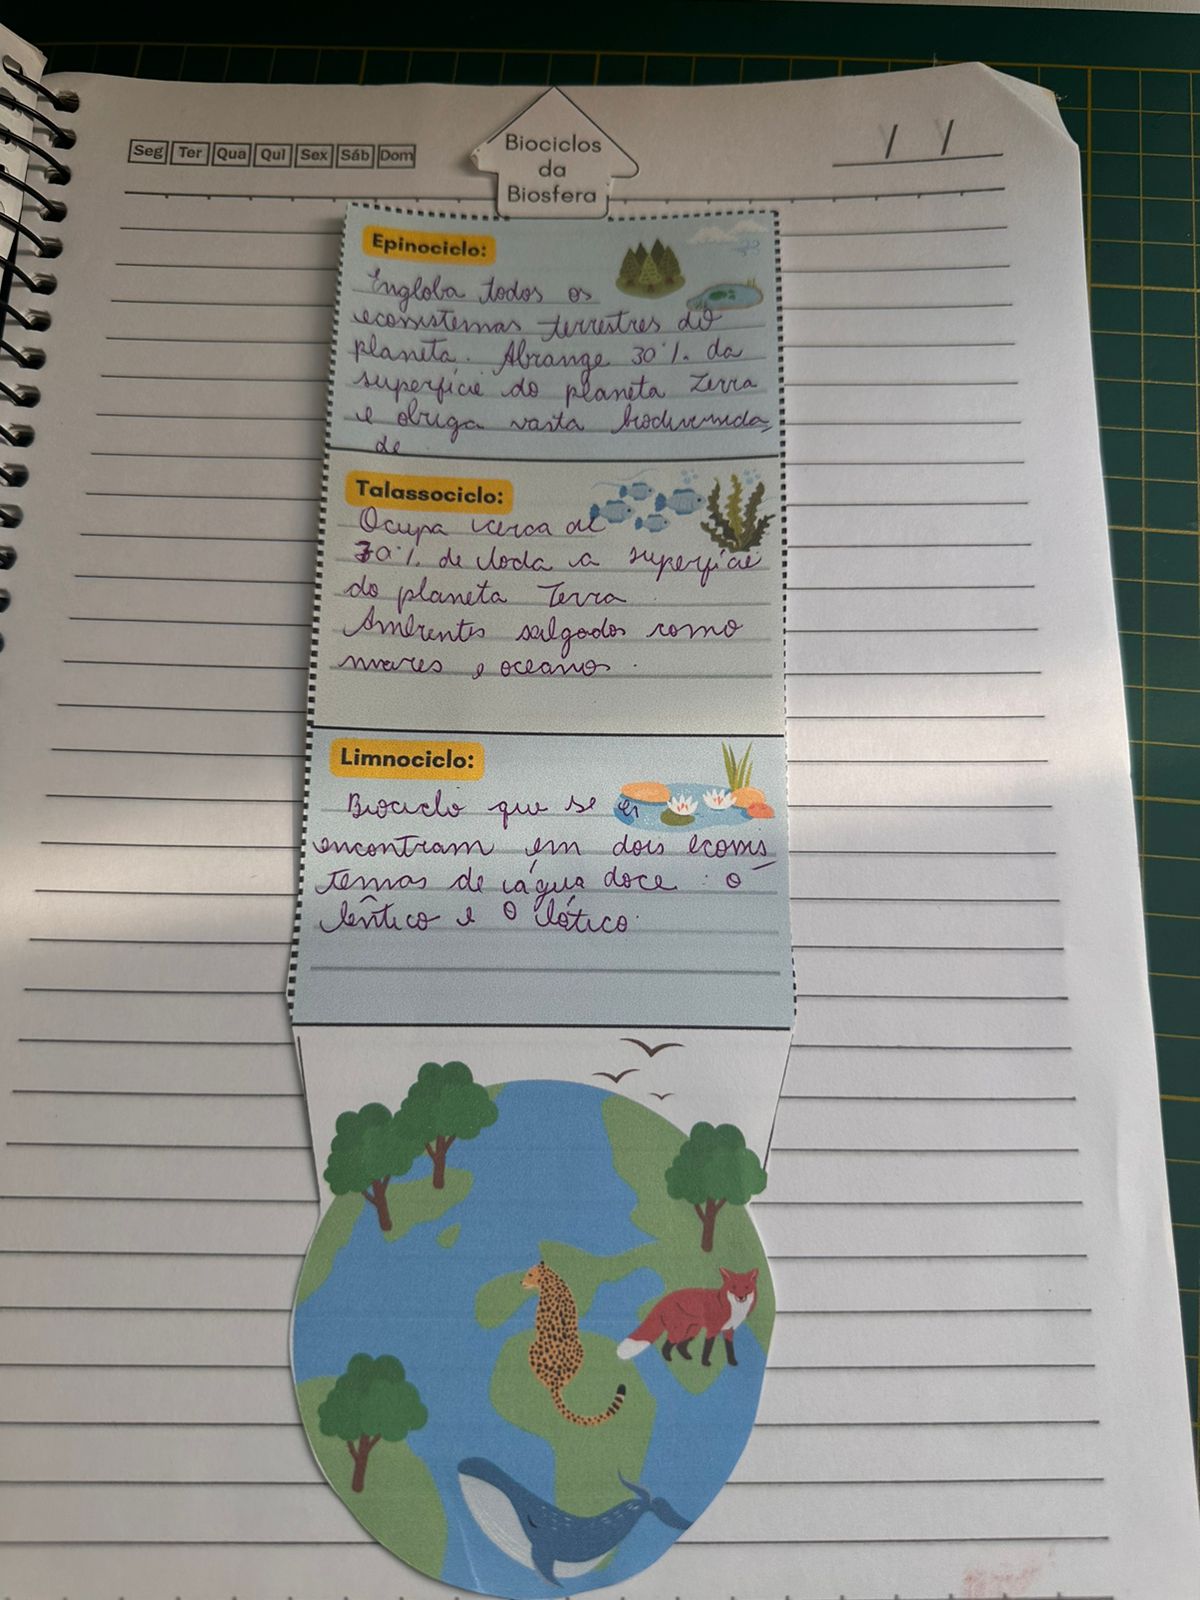 Seg Ter Qua Qui Sex Sáb Dom
/ /
Biociclos
da
Biosfera
Epinociclo:
Engloba todos os
ecossistemas terrestres do
planeta. Abrange 30%. da
superfície do planeta Terra
e obriga vasta biodiversida,
de
Talassociclo:
Ocupa cerca de
70%. de toda a superfície
do planeta Terra
Ambientes salgados como
mares e oceanos.
Limnociclo:
Biociclo que se
encontram em dois ecossis
temas de água doce: o
lêntico e o lótico.